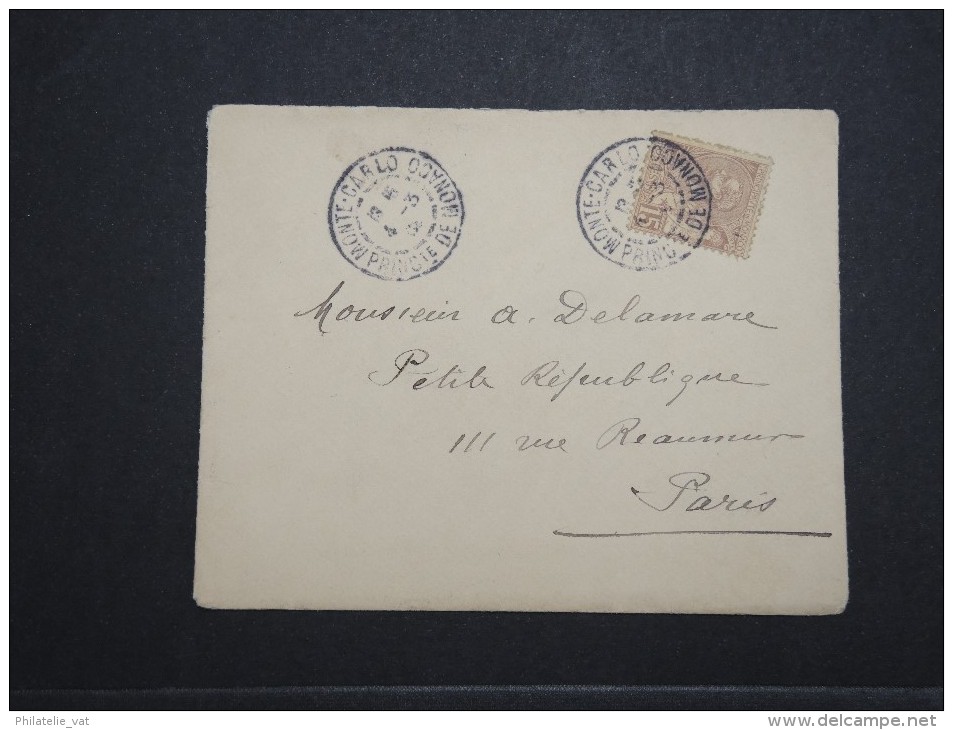 MONTE-CARLO
PRINCTE DE MONACO
MONTE-CARLO
PRINCTE DE MONACO
15
Monsieur A. Delamare
Petite République
111 rue Reaumur
Paris
Philatelie_vat
www.delcampe.net